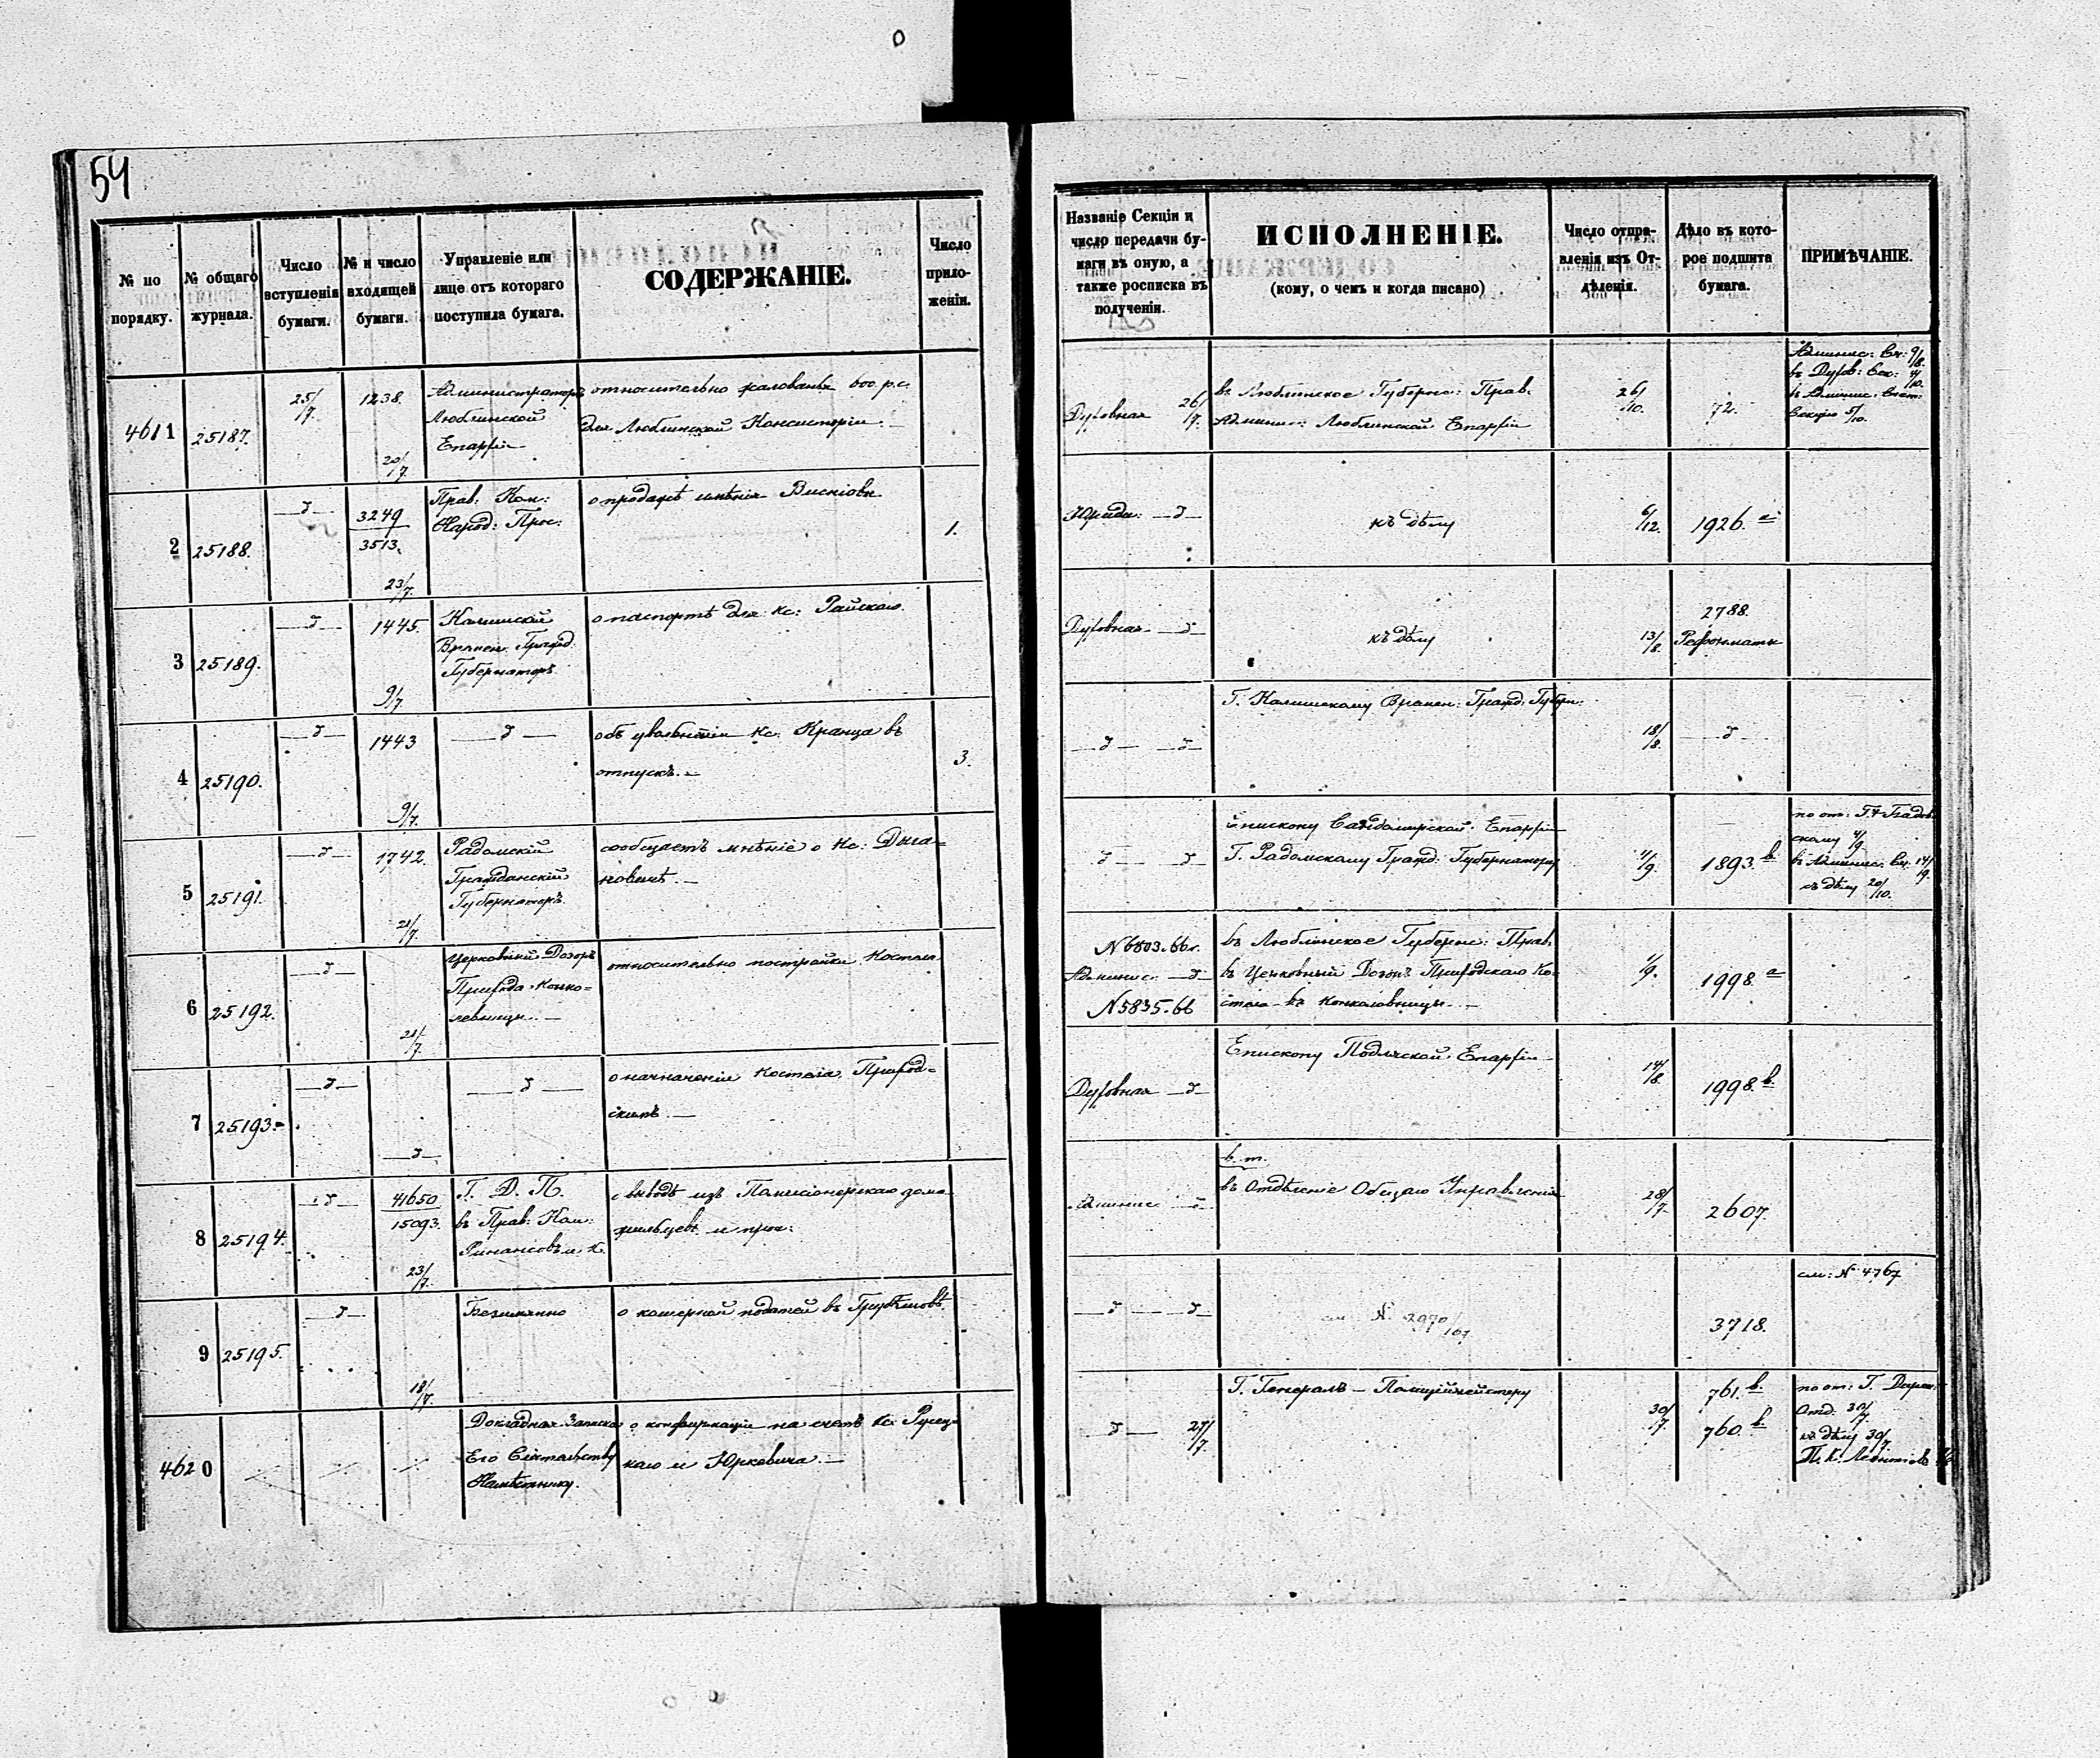 54
№ по порядку.
№ общаго журнала.
Число вступленія бумаги.
№ и число входящей бумаги.
Управленіе или лице отъ котораго поступила бумага.
СОДЕРЖАНІЕ.
Число приложеніи.
Названіе Секціи и число передачи бумаги въ оную, а также росписка въ полученіи.
ИСПОЛНЕНІЕ.
(кому, о чемъ и когда писано)
Число отправленія изъ Отдѣленія.
Дѣло въ которое подшита бумага.
ПРИМѢЧАНІЕ.
4611 25187. 25/7. 1238. 20/7.
Администраторъ
Люблинской
Епархіи
относительно жалованья 600 р.с.
для Люблинской Консисторіи. —
Духовная 26/7.
въ Люблинское Губернс: Прав.
Админис: Люблинской Епархіи
26/10. 72.
Админис: Сч: 9/8.
въ Духов: Сек:
въ Админис. Счет:
Секцію 5/10.
2 25188. —д— 3249/3513. 23/7.
Прав: Ком:
Народ: Прос:
о продажѣ имѣнія
1.
Юриди: —д—
къ дѣлу
6/12. 1926. а
3 25189. —д— 1445. 9/7.
Калишскій
Времен. Гражд.
Губернаторъ
о паспортѣ для Кс: Райскаго.
Духовная —д—
къ дѣлу
13/8. 2788.
Реформаты
4 25190. —д— 1443 9/7.
—д—
объ увольненіи Кс. Кранца въ
отпускъ. —
3.
—д— —д—
Г. Калишскому Времен: Гражд: Губерн:
18/8. —д—
5 25191. —д— 1742. 21/7.
Радомскій
Гражданскій
Губернаторъ
сообщаетъ мнѣніе о Кс:
—
д — д
Епископу Сандомирской Епархіи
Г. Радомскому Гражд: Губернатору
4/9. 1893. в
по от: Г.
скому 4/9
въ Админис. Сч. 14/9.
къ дѣлу 20/10.
6 25192. —д— 21/7.
Церковный Дозоръ
Прихода
относительно постройки Костела
N 6803. 66 г.
Админис. —д—
N 5835. 66
въ Люблинское Губернс: Прав.
въ Церковный Дозоръ Приходскаго Ко-
стела въ
1/9. 1998. а
7 25193. —д— —д—
—д—
о назначеніи Костела Приход-
скимъ. —
Духовная —д—
Епископу Подляской Епархіи
14/8. 1998. в.
8 25194. —д— 41650/15093. 23/7.
Г. Д. П.
въ Прав: Ком:
Финансовъ и К.
о выводѣ изъ Пансіонерскаго дома
жильцевъ и проч:
Админис.
в. т.
въ Отдѣленіе Общаго Управленія
28/7. 2607.
9 25195. —д— 18/7.
Безимянно
о кошерной податей въ Грубешовѣ
—д— —д—
3718.
см: N 4767
4620
Докладная Записка
Его Сіятельству
Намѣстнику.
о конфискаціи на счетъ Кс.
каго и Юркевича. —
—д— 27/7.
Г. Генералъ — Полицейместеру
30/7. 761. в.
760. в.
по от: Г. Дирек:
Отд. 30/7
къ дѣлу 30/7